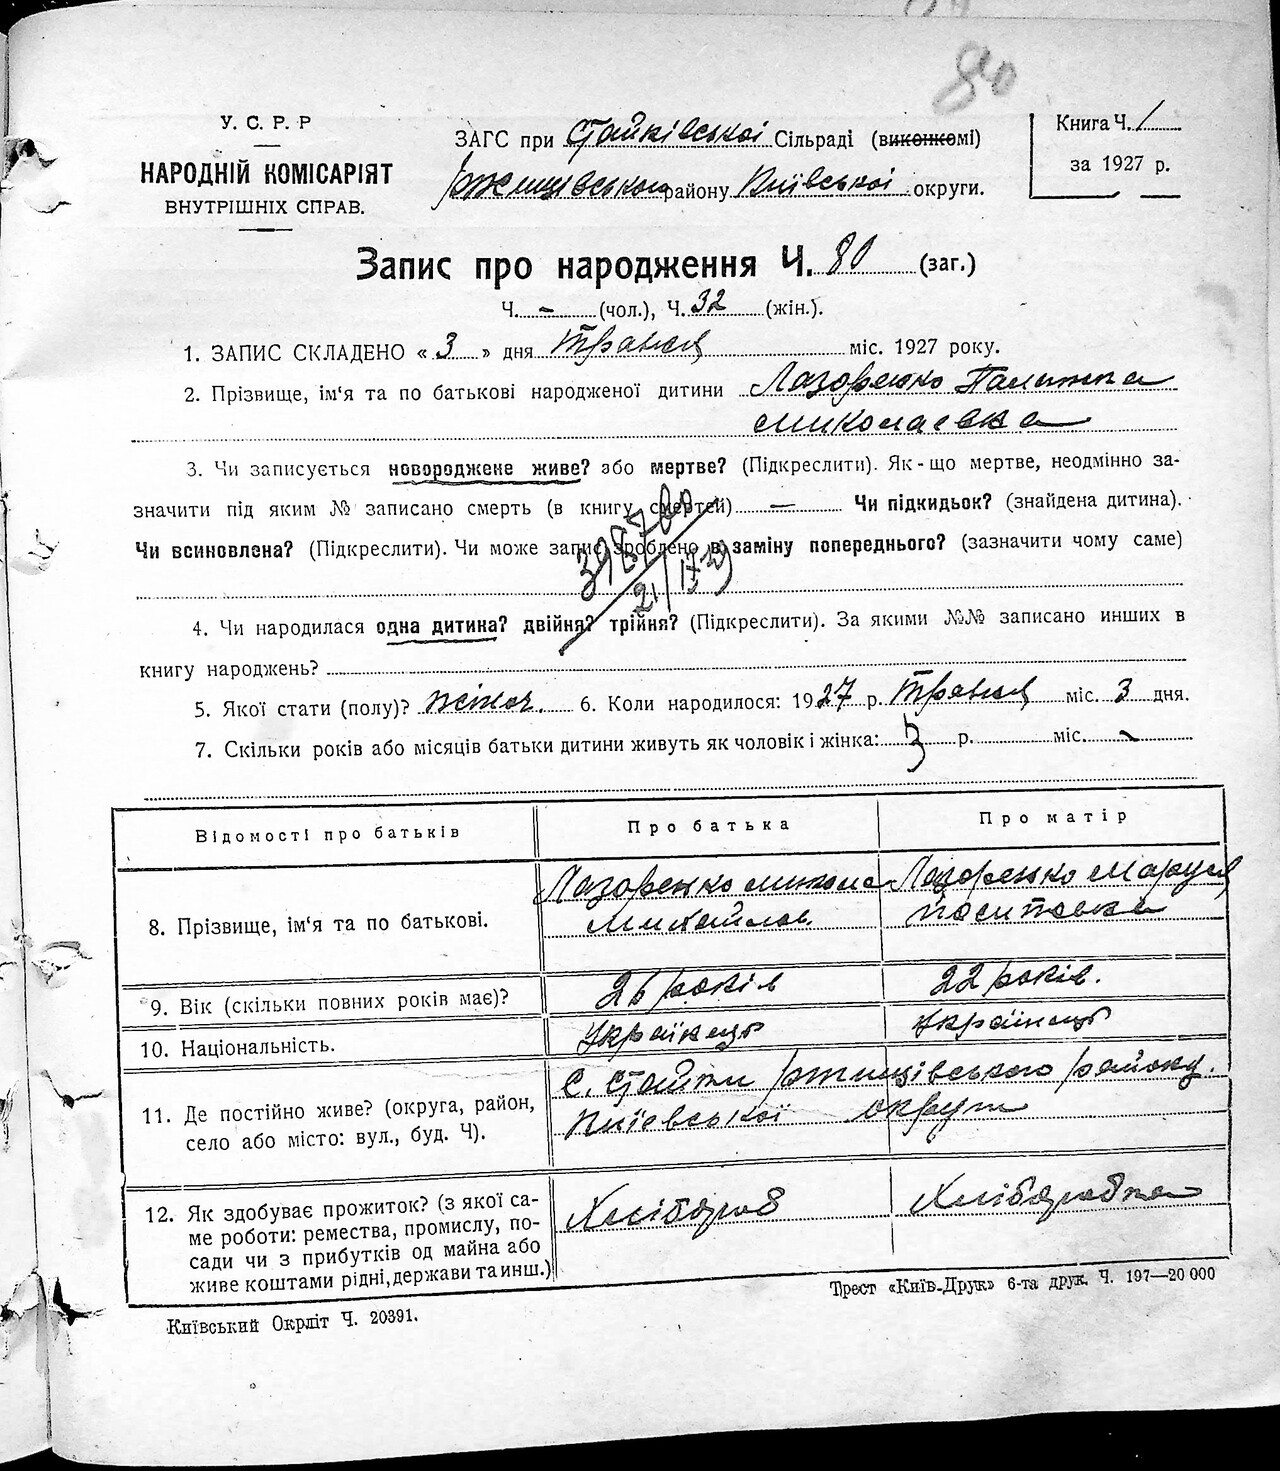 80
У. С. Р. Р
НАРОДНІЙ КОМІСАРІЯТ
ВНУТРІШНІХ СПРАВ.
ЗАГС при Стайківської Сільраді (виконкомі)
Ржищівського району Київської округи.
Книга Ч. 1
за 1927 р.
Запис про народження Ч. 80 (заг.)
Ч. - (чол.), Ч. 32 (жін.).
1. ЗАПИС СКЛАДЕНО « 3 » дня Травня міс. 1927 року.
2. Прізвище, ім'я та по батькові народженої дитини Лазоренко
Миколаевна
3. Чи записується новороджене живе? або мертве? (Підкреслити). Як-що мертве, неодмінно за-
значити під яким № записано смерть (в книгу смертей) — Чи підкидьок? (знайдена дитина).
Чи всиновлена? (Підкреслити). Чи може запис зроблено в заміну попереднього? (зазначити чому саме)
4. Чи народилася одна дитина? двійня? трійня? (Підкреслити). За якими №№ записано инших в
книгу народжень?
5. Якої стати (полу)? жіноч. 6. Коли народилося: 1927 р. Травня міс. 3 дня.
7. Скільки років або місяців батьки дитини живуть як чоловік і жінка: 3 р. міс. -
Відомості про батьків Про батька Про матір
8. Прізвище, ім'я та по батькові.
Лазоренко Микола Лазоренко Маруся
Михайлов. Йосиповна
9. Вік (скільки повних років має)? 26 років 22 років.
10. Національність. Українець Українець
11. Де постійно живе? (округа, район,
село або місто: вул., буд. Ч).
С. Стайки Ржищівського району.
Київської округи
12. Як здобуває прожиток? (з якої са-
ме роботи: ремества, промислу, по-
сади чи з прибутків од майна або
живе коштами рідні, держави та инш.)
Хлібороб Хліборобка
Київський Окрліт Ч. 20391.
Трест «Київ-Друк» 6-та друк. Ч. 197—20 000